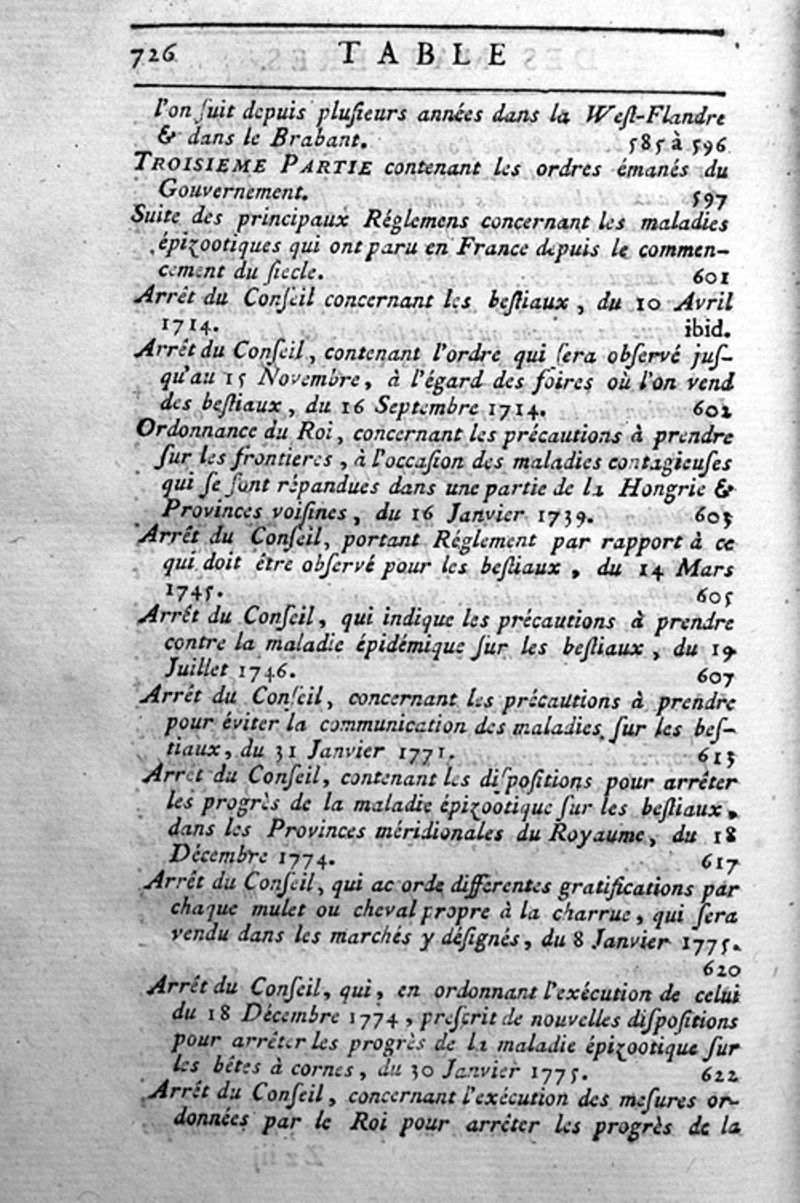 726 TABLE
l'on ſuit depuis pluſieurs années dans la Weſt-Flandre
& dans le Brabant. 585 à 596
TROISIEME PARTIE contenant les ordres émanés du
Gouvernement. 597
Suite des principaux Réglemens concernant les maladies
épizootiques qui ont paru en France depuis le commen-
cement du ſiecle. 601
Arrêt du Conſeil concernant les beſtiaux, du 10 Avril
1714. ibid.
Arrêt du Conſeil, contenant l'ordre qui ſera obſervé juſ-
qu'au 15 Novembre, à l'égard des foires où l'on vend
des beſtiaux, du 16 Septembre 1714. 602
Ordonnance du Roi, concernant les précautions à prendre
ſur les frontieres, à l'occaſion des maladies contagieuſes
qui ſe ſont répandues dans une partie de la Hongrie &
Provinces voiſines, du 16 Janvier 1739. 603
Arrêt du Conſeil, portant Réglement par rapport à ce
qui doit être obſervé pour les beſtiaux, du 14 Mars
1745. 605
Arrêt du Conſeil, qui indique les précautions à prendre
contre la maladie épidémique ſur les beſtiaux, du 19
Juillet 1746. 607
Arrêt du Conſeil, concernant les précautions à prendre
pour éviter la communication des maladies ſur les beſ-
tiaux, du 31 Janvier 1771. 613
Arret du Conſeil, contenant les diſpoſitions pour arrêter
les progrès de la maladie épizootique ſur les beſtiaux,
dans les Provinces méridionales du Royaume, du 18
Décembre 1774. 617
Arrêt du Conſeil, qui ac orde differentes gratifications par
chaque mulet ou cheval propre à la charrue, qui ſera
vendu dans les marchés y déſignés, du 8 Janvier 1775.
620
Arrêt du Conſeil, qui, en ordonnant l'exécution de celui
du 18 Décembre 1774, preſcrit de nouvelles diſpoſitions
pour arrêter les progrès de la maladie épizootique ſur
les bêtes à cornes, du 30 Janvier 1775. 622
Arrêt du Conſeil, concernant l'exécution des meſures or-
données par le Roi pour arrêter les progrès de la